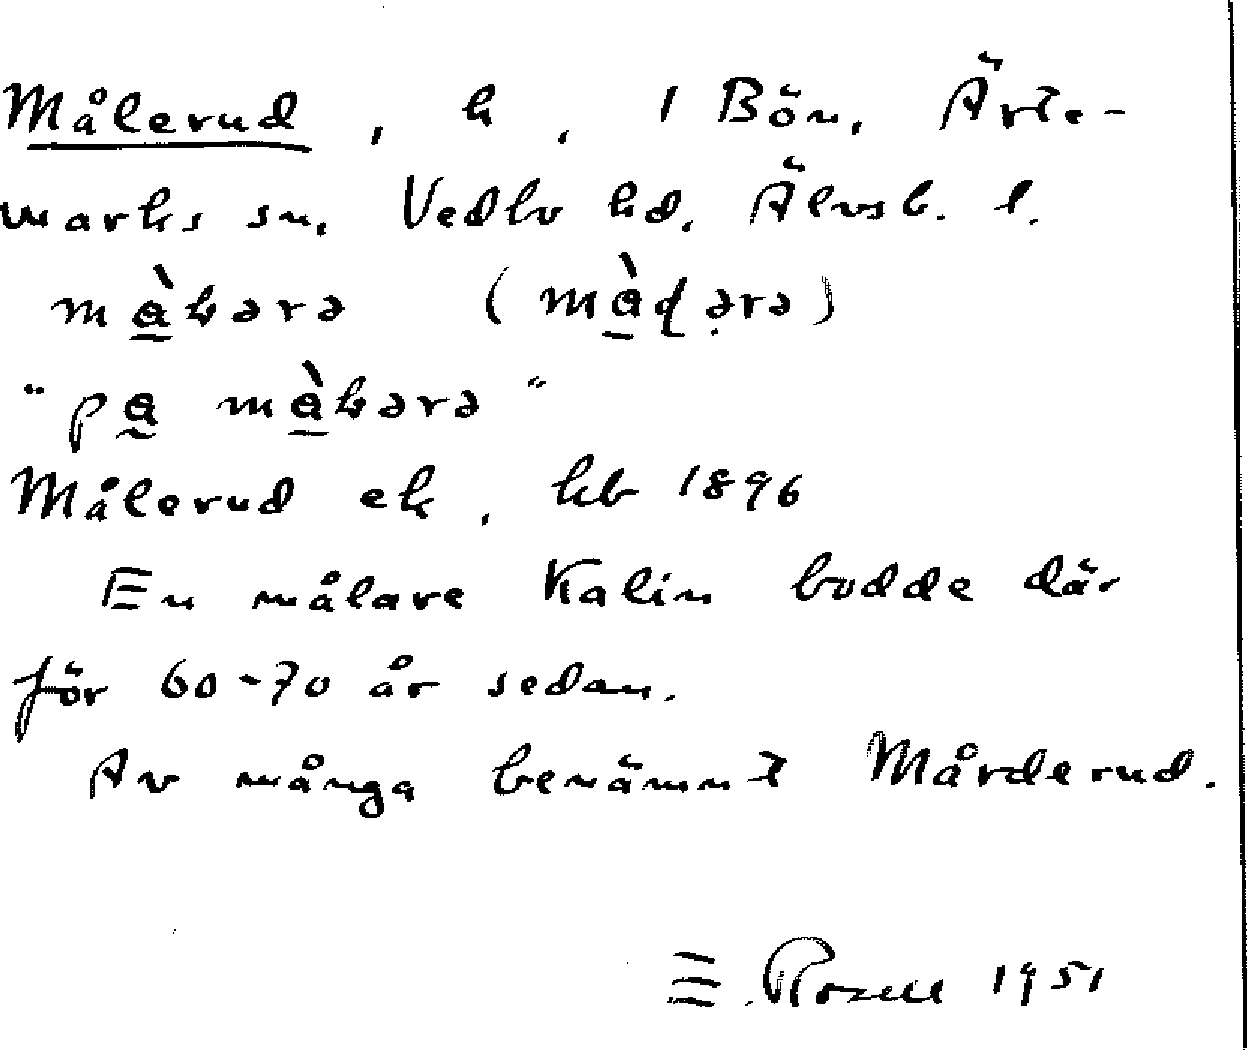 Målerud, h, 1 Bön, Ärte-
marks sn, Vedbo hd, Älvsb. l.
Målerud eh, kb 1896
En målare Kalin bodde där
för 60-70 år sedan.
Av många benämnt Mårderud.
E. Rosell 1951